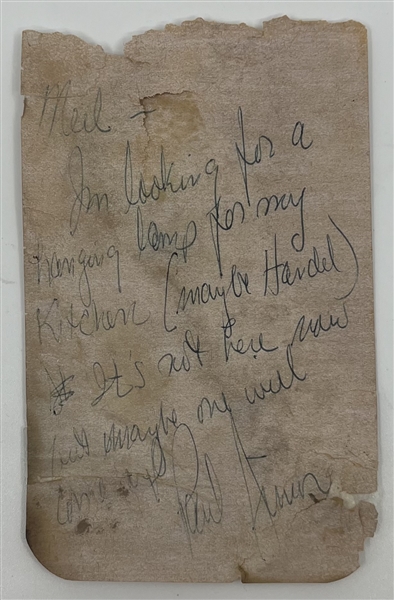 Neil -
I'm looking for a
hanging lamp for my
Kitchen (maybe Handel)
It's not here now
but maybe one will
come up
Paul Simon